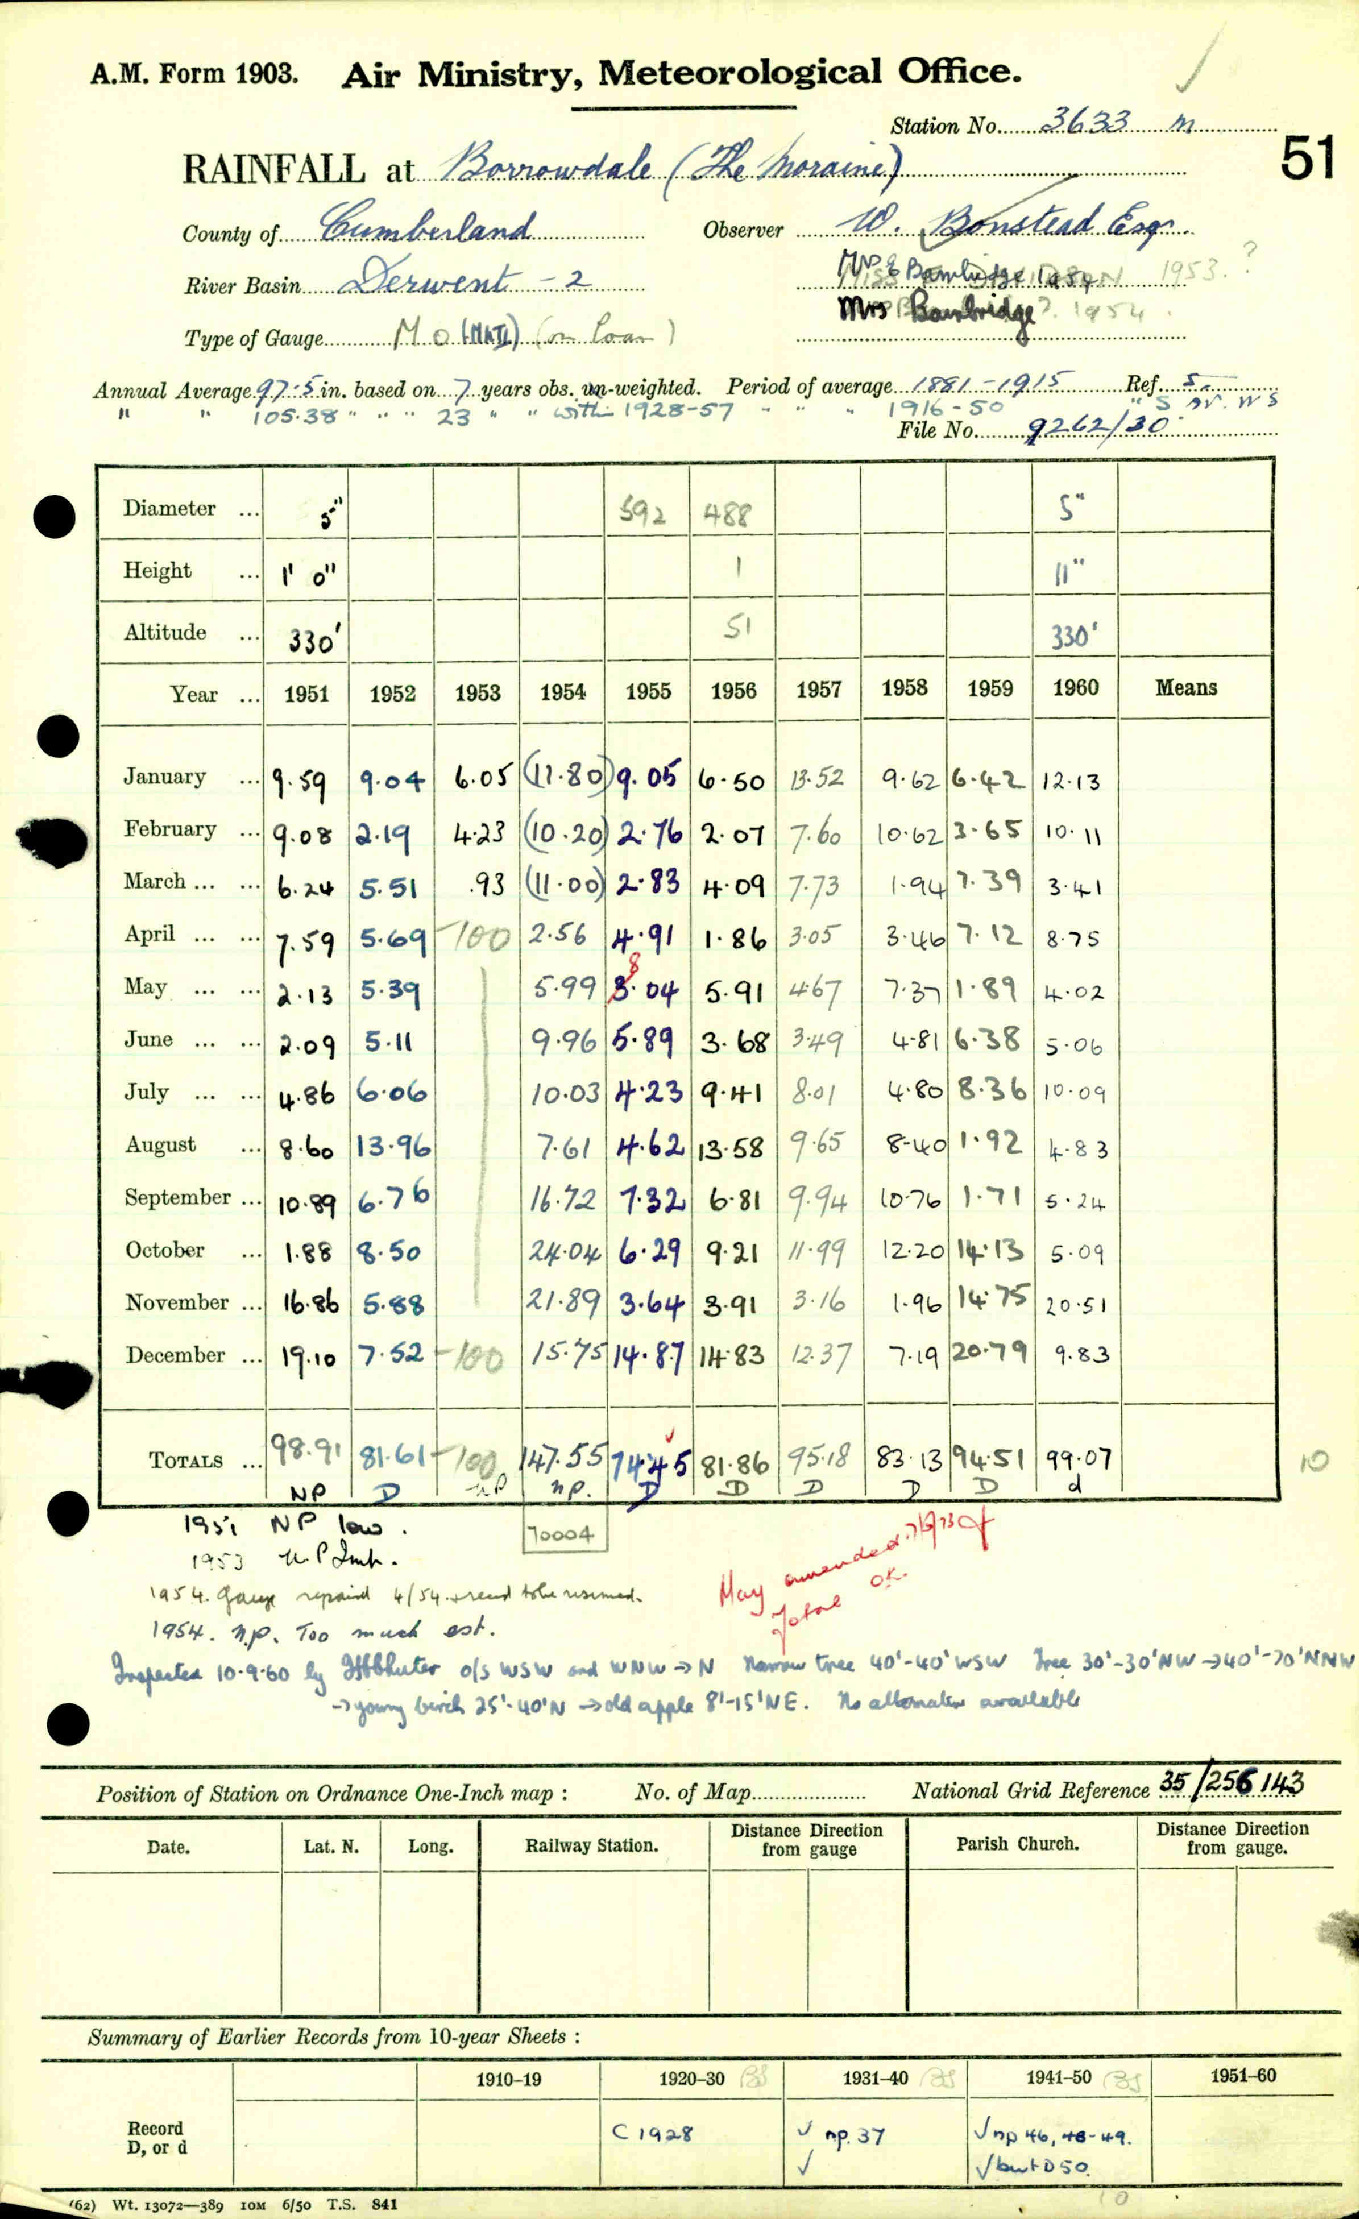 A.M. Form 1903. Air Ministry, Meteorological Office.
Station No. 3633 m
51
RAINFALL at Borrowdale (The Moraine)
County of Cumberland Observer W. Bonstead Esq.
River Basin Derwent - 2 1953.?
Mrs Bambridge ?. 1954.
Type of Gauge MO (MATL) (on loan)
Annual Average 97.5 in. based on 7 years obs. un-weighted. Period of average 1881-1915 Ref. 5.
" " 105.38 " " " 23 " " within 1928-57 " " " 1916-50 " S AV. WS
File No. 9262/30
Diameter ... 5" 592 488 5"
Height ... 1' 0" 1 11"
Altitude ... 330' 51 330'
Year ... 1951 1952 1953 1954 1955 1956 1957 1958 1959 1960 Means
January ... 9.59 9.04 6.05 (11.80) 9.05 6.50 13.52 9.62 6.42 12.13
February ... 9.08 2.19 4.23 (10.20) 2.76 2.07 7.60 10.62 3.65 10.11
March ... ... 6.24 5.51 .93 (11.00) 2.83 4.09 7.73 1.94 7.39 3.41
April ... ... 7.59 5.69 -100 2.56 4.91 1.86 3.05 3.46 7.12 8.75
8
May ... ... 2.13 5.39 5.99 3.04 5.91 4.67 7.37 1.89 4.02
June ... ... 2.09 5.11 9.96 5.89 3.68 3.49 4.81 6.38 5.06
July ... ... 4.86 6.06 10.03 4.23 9.41 8.01 4.80 8.36 10.09
August ... 8.60 13.96 7.61 4.62 13.58 9.65 8.40 1.92 4.83
September ... 10.89 6.76 16.72 7.32 6.81 9.94 10.76 1.71 5.24
October ... 1.88 8.50 24.04 6.29 9.21 11.99 12.20 14.13 5.09
November ... 16.86 5.88 21.89 3.64 3.91 3.16 1.96 14.75 20.51
December ... 19.10 7.52 -100 15.75 14.87 14.83 12.37 7.19 20.79 9.83
TOTALS ... 98.91 81.61 -100 147.55 74.45 81.86 95.18 83.13 94.51 99.07 10
NP D NP NP. D D D D D d
1951 NP low. 70004
1953 N.P Imp.
May amended
Total OK
1954. Gauge repaired 4/54 & record to be resumed.
1954. N.P. Too much est.
Inspected 10.9.60 by o/s WSW and WNW → N Narrow tree 40'-40' WSW Tree 30'-30' NW → 40'-70' NNW
→ young birch 25'-40' N → old apple 8'-15' NE. No alternative available
Position of Station on Ordnance One-Inch map : No. of Map National Grid Reference 35/256143
Date. Lat. N. Long. Railway Station. Distance from gauge Direction Parish Church. Distance from gauge. Direction
Summary of Earlier Records from 10-year Sheets :
1910–19 1920–30 1931–40 1941–50 1951–60
Record D, or d C 1928 ✓ np. 37 ✓ np 46, 48-49.
✓ ✓ but D 50.
(62) Wt. 13072—389 10M 6/50 T.S. 841
10